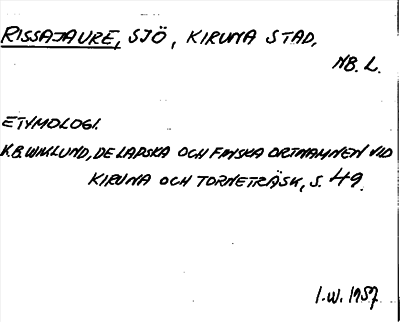 RISSAJAURE, SJÖ, KIRUNA STAD,
NB. L.
ETYMOLOGI.
K.B. WIKLUND, DE LAPSKA OCH FINSKA ORTNAMNEN VID
KIRUNA OCH TORNETRÄSK, S. 49.
I.W. 1957